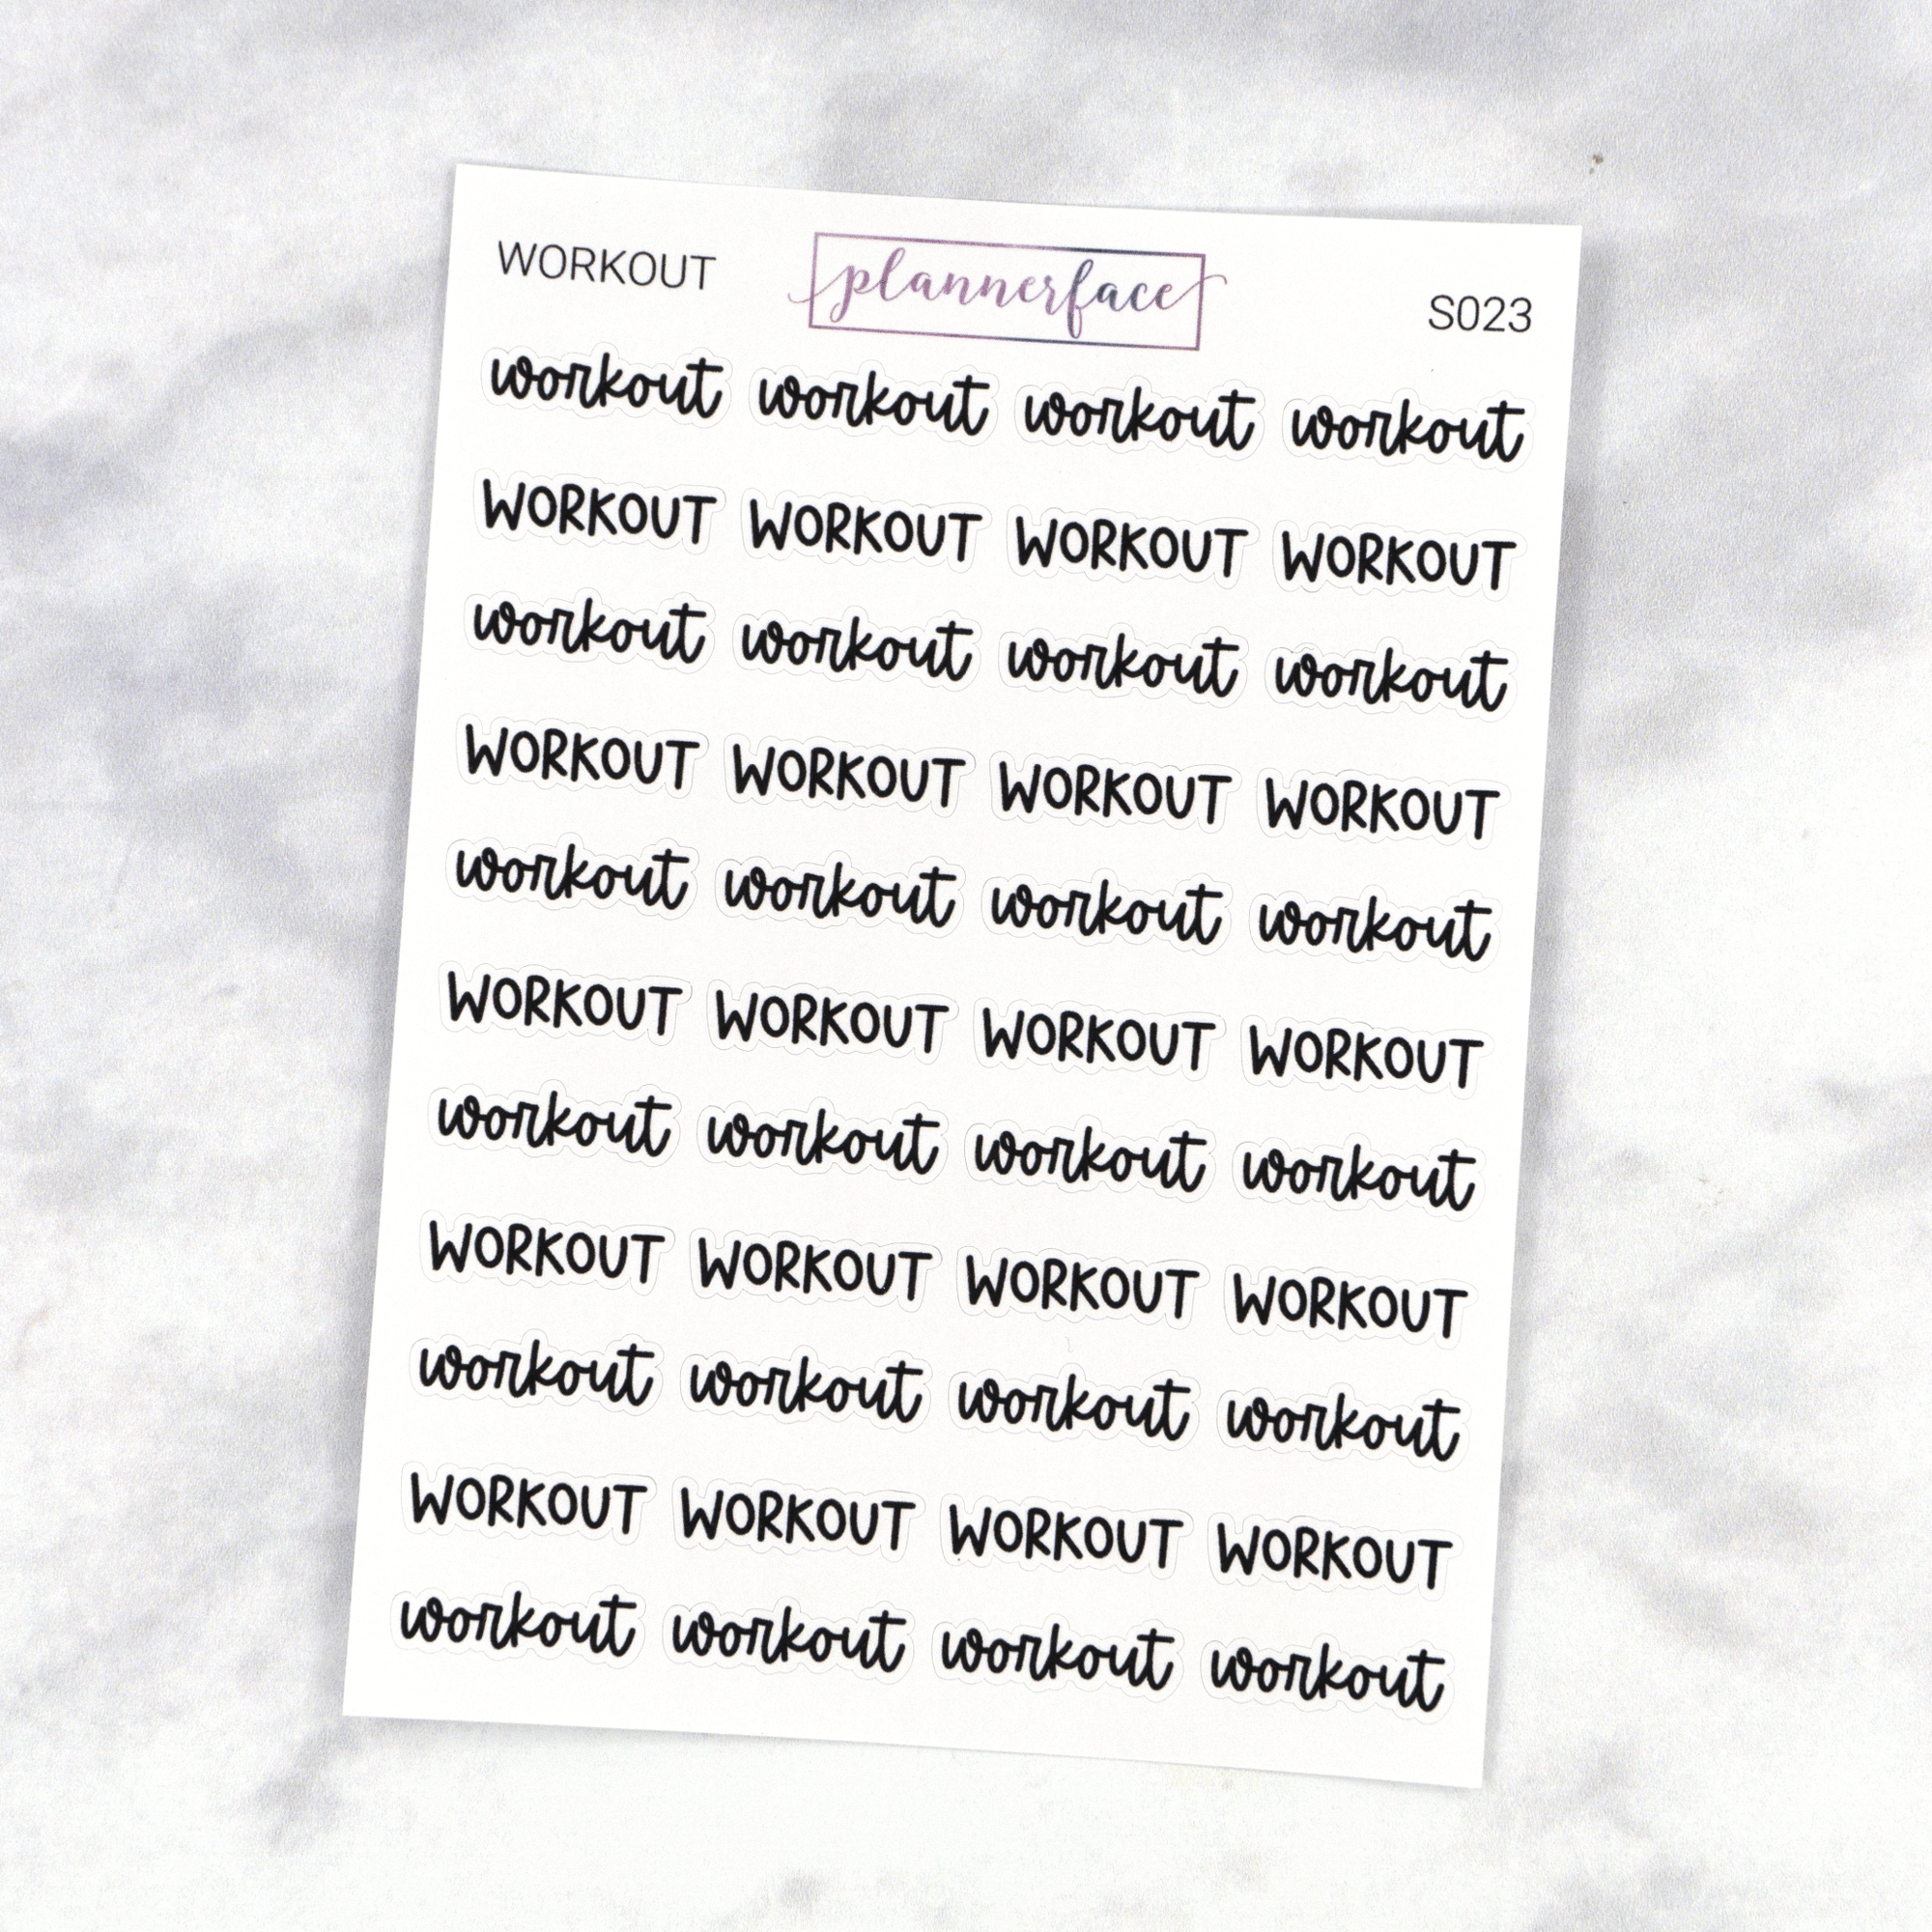 WORKOUT plannerface S023
workout workout workout workout
WORKOUT WORKOUT WORKOUT WORKOUT
workout workout workout workout
WORKOUT WORKOUT WORKOUT WORKOUT
workout workout workout workout
WORKOUT WORKOUT WORKOUT WORKOUT
workout workout workout workout
WORKOUT WORKOUT WORKOUT WORKOUT
workout workout workout workout
WORKOUT WORKOUT WORKOUT WORKOUT
workout workout workout workout